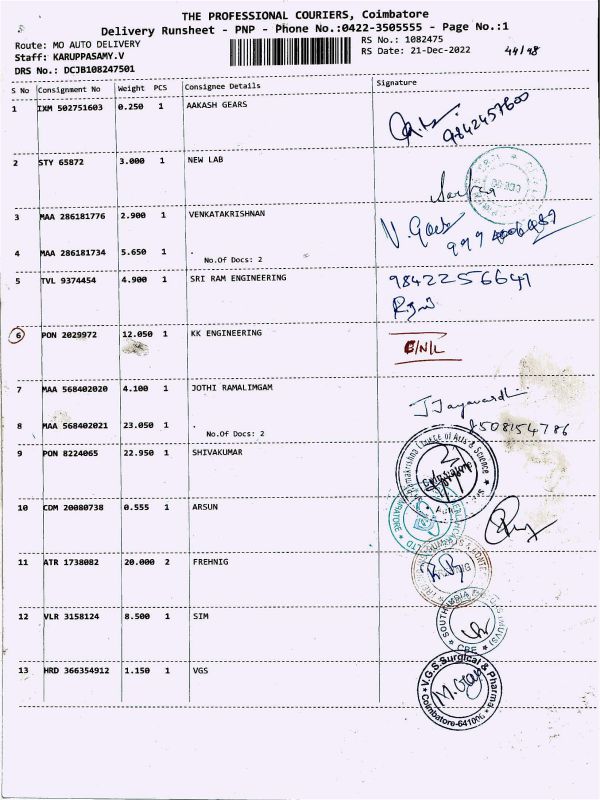 THE PROFESSIONAL COURIERS, Coimbatore
Delivery Runsheet - PNP - Phone No.:0422-3505555 - Page No.:1
Route: MO AUTO DELIVERY
RS No.: 1082475
Staff: KARUPPASAMY.V
RS Date: 21-Dec-2022
DRS No.: DCJB108247501
S No Consignment No Weight PCS Consignee Details Signature
1 IXM 502751603 0.250 1 AAKASH GEARS
9842457600
2 STY 65872 3.000 1 NEW LAB
3 MAA 286181776 2.900 1 VENKATAKRISHNAN
4 MAA 286181734 5.650 1 .
No.Of Docs: 2
5 TVL 9374454 4.900 1 SRI RAM ENGINEERING
9842256641
6 PON 2029972 12.050 1 KK ENGINEERING
7 MAA 568402020 4.100 1 JOTHI RAMALIMGAM
8508154786
8 MAA 568402021 23.050 1 .
No.Of Docs: 2
9 PON 8224065 22.950 1 SHIVAKUMAR
of Arts & Science
10 CDM 20080738 0.555 1 ARSUN
11 ATR 1738082 20.000 2 FREHNIG
12 VLR 3158124 8.500 1 SIM
SOUTH INDIA
CBE
13 HRD 366354912 1.150 1 VGS
V.G.S.Surgical & Pharma
Coimbatore-641006